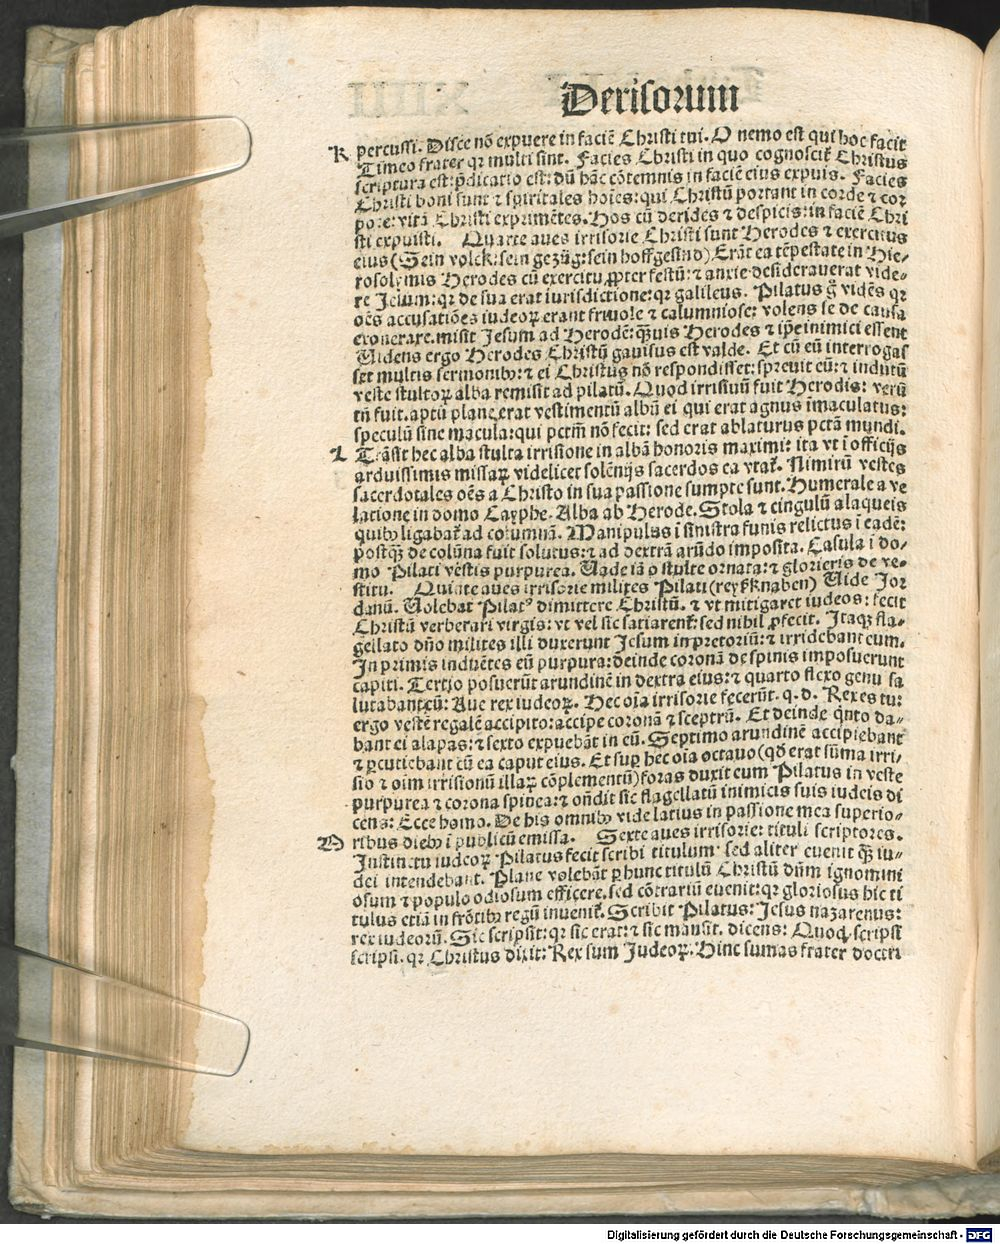 Derisorum
K percussi. Disce nõ expuere in faciẽ Christi tui. O nemo est qui hoc facit
Timeo frater qr multi sint. Facies Christi in quo cognoscit᷑ Christus
scriptura est: p̃dicatio est: dũ hãc cõtemnis in faciẽ eius expuis. Facies
Christi boni sunt ⁊ spiritales hoĩes: qui Christũ portant in corde ⁊ cor
pore: vitã Christi exprimẽtes. Hos cũ derides ⁊ despicis: in faciẽ Chri
sti expuisti. Quarte aues irrisorie Christi sunt Herodes ⁊ exercitus
eius (Sein volck: sein gezüg: sein hoffgesind) Erãt ea tẽpestate in Hie-
rosolymis Herodes cũ exercitu ꝓpter festũ: ⁊ anxie desiderauerat vide-
re Jesum: qr de sua erat iurisdictione: qr galileus. Pilatus g̃ vidẽs qr
oẽs accusatiões iudeoꝝ erant friuole ⁊ calumniose: volens se de causa
exonerare. misit Jesum ad Herodẽ: q̃uis Herodes ⁊ ip̃e inimici essent
Uidens ergo Herodes Christũ gauisus est valde. Et cũ eũ interrogas
set multis sermonibꝰ: ⁊ ei Christus nõ respondisset: spreuit eũ: ⁊ indutũ
veste stultoꝝ alba remisit ad pilatũ. Quod irrisiuũ fuit Herodis: verũ
tñ fuit. aptũ plane erat vestimentũ albũ ei qui erat agnus ĩmaculatus:
speculũ sine macula: qui pctm̃ nõ fecit: sed erat ablaturus pctã mundi.
L Trãsĩt hec alba stulta irrisione in albã honoris maximi: ita vt ĩ officijs
arduissimis missaꝝ videlicet solẽnijs sacerdos ea vtat᷑. Nimirũ vestes
sacerdotales oẽs a Christo in sua passione sumpte sunt. Humerale a ve
latione in domo Cayphe. Alba ab Herode. Stola ⁊ cingulũ a laqueis
quibꝰ ligabat᷑ ad columnã. Manipulus ĩ sinistra funis relictus ĩ eadẽ:
postq̃ de colũna fuit solutus: ⁊ ad dextrã arũdo imposita. Casula ĩ do-
mo Pilati vestis purpurea. Uade iã o stulte ornata: ⁊ glorieris de ve-
stitu. Quinte aues irrisorie milites Pilati (reyß knaben) Uide Jor
danũ. Uolebat Pilatꝰ dimittere Christũ. ⁊ vt mitigaret iudeos: fecit
Christũ verberari virgis: vt vel sic satiarent᷑: sed nihil ꝓfecit. Itaqꝫ fla-
gellato dño milites illi duxerunt Jesum in pretoriũ: ⁊ irridebant eum.
In primis induẽtes eũ purpura: deinde coronã de spinis imposuerunt
capiti. Tertio posuerũt arundinẽ in dextra eius: ⁊ quarto flexo genu sa
lutabant eũ: Aue rex iudeoꝝ. Hec oĩa irrisorie fecerũt. q. d. Rex es tu:
ergo vestẽ regalẽ accipito: accipe coronã ⁊ sceptrũ. Et deinde q̃nto da-
bant ei alapas: ⁊ sexto expuebãt in eũ. Septimo arundinẽ accipiebant
⁊ ꝑcutiebant cũ ea caput eius. Et suꝑ hec oĩa octauo (qd̃ erat sũma irri-
sio ⁊ oĩm irrisionũ illaꝝ cõplementũ) foras duxit eum Pilatus in veste
purpurea ⁊ corona spinea: ⁊ oñdit sic flagellatũ inimicis suis iudeis di
cens: Ecce homo. De his omnibꝰ vide latius in passione mea superio-
M ribus diebꝰ ĩ publicũ emissa. Sexte aues irrisorie: tituli scriptores.
Instinctu iudeoꝝ Pilatus fecit scribi titulum: sed aliter euenit q̃ iu-
dei intendebant. Plane volebãt ꝑ hunc titulũ Christũ dñm ignomini
osum ⁊ populo odiosum efficere. sed cõtrariũ euenit: qr gloriosus hic ti
tulus etiã in frõtibꝰ regũ inuenit᷑. Scribit Pilatus: Jesus nazarenus:
rex iudeorũ. Sic scripsit: qr sic erat: ⁊ sic mansit. dicens: Quod scripsi
scripsi. qr Christus dixit: Rex sum Judeoꝝ. Hinc sumas frater doctri
Digitalisierung gefördert durch die Deutsche Forschungsgemeinschaft - DFG